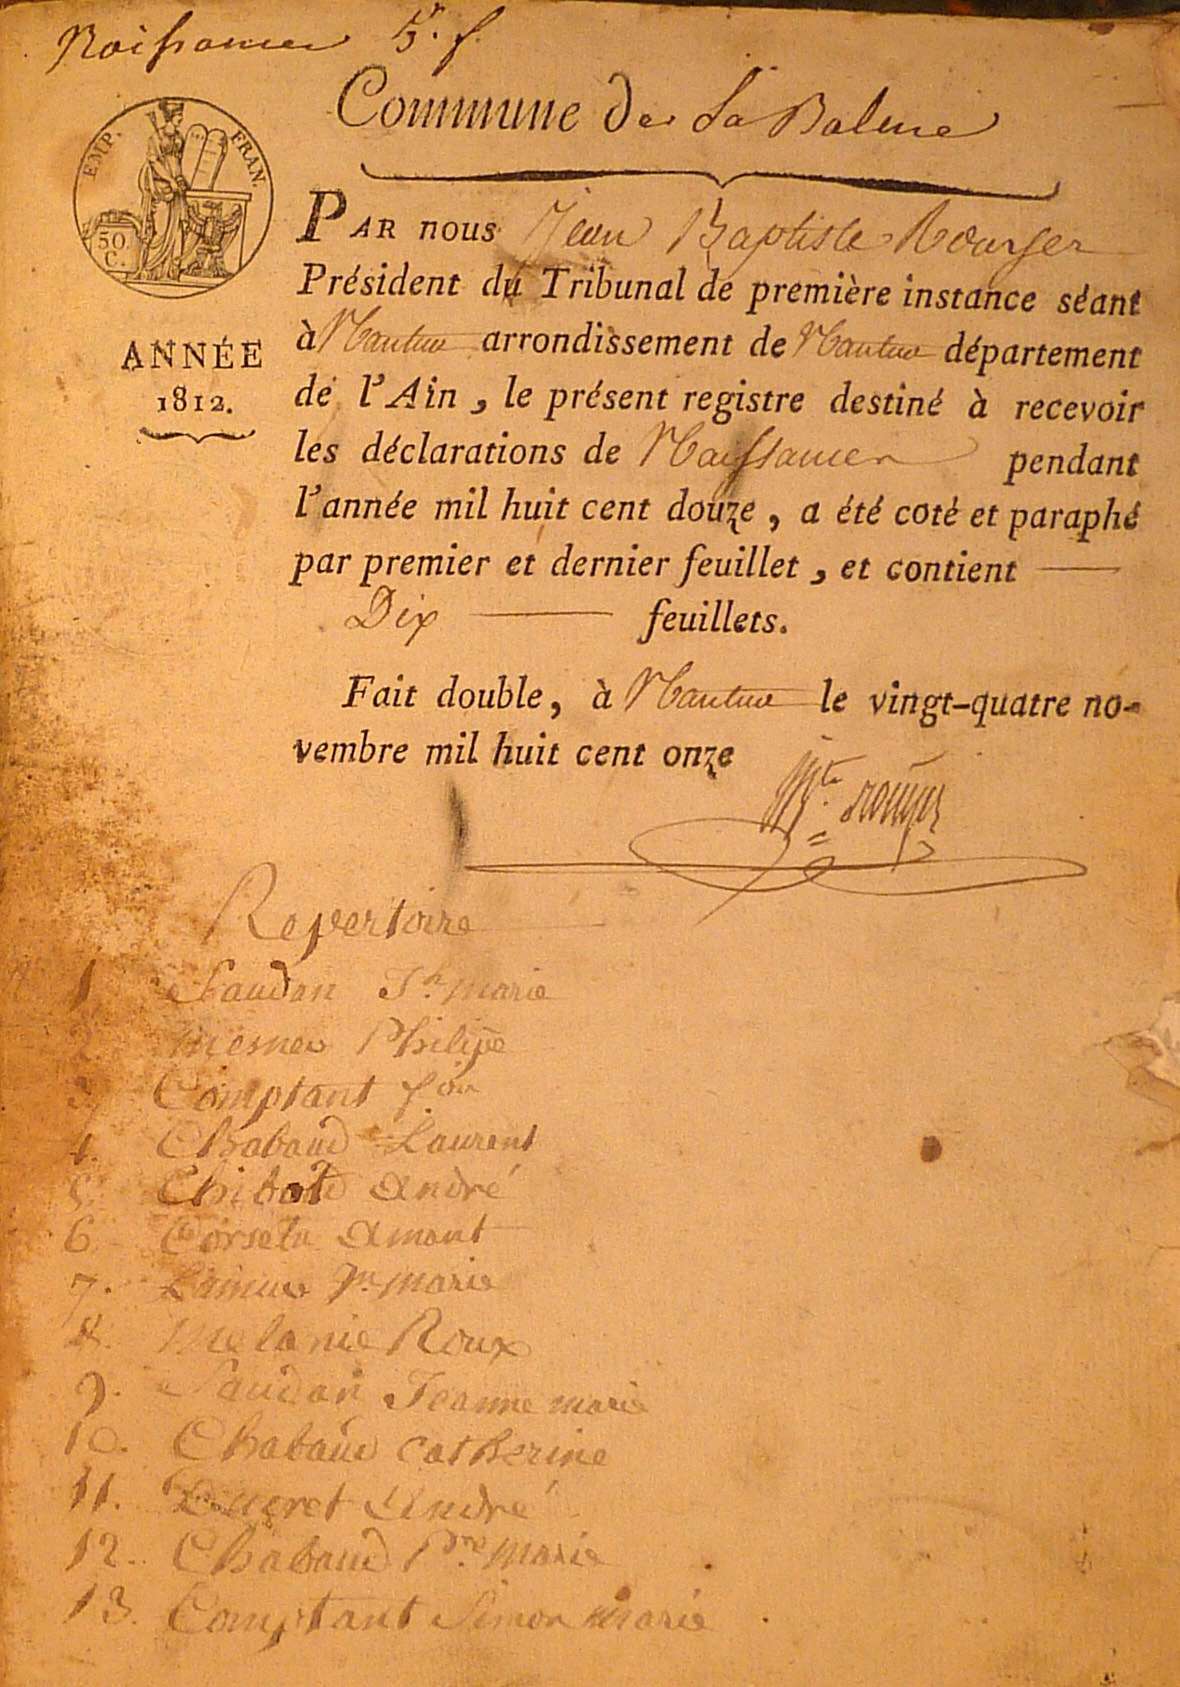 Naissances 5.r f.
EMP. FRAN.
50. C.
Commune de La Balme
PAR nous Jean Baptiste Rouyer
Président du Tribunal de première instance séant
à Nantua arrondissement de Nantua département
ANNÉE
1812.
de l'Ain, le présent registre destiné à recevoir
les déclarations de Naissances pendant
l'année mil huit cent douze, a été coté et paraphé
par premier et dernier feuillet, et contient —
Dix — feuillets.
Fait double, à Nantua le vingt-quatre no-
vembre mil huit cent onze
Bte. rouyer
Repertoire
1 Saudan Jh. marie
2 Philipe
3 Comptant
4. Chabaud Laurent
5 André
6 Amant
7. marie
8. Melanie Roux
9. Saudan Jeanne marie
10. Chabaud Catherine
11. Ducret André
12. Chabaud Pre marie
13. Comptant Simon marie